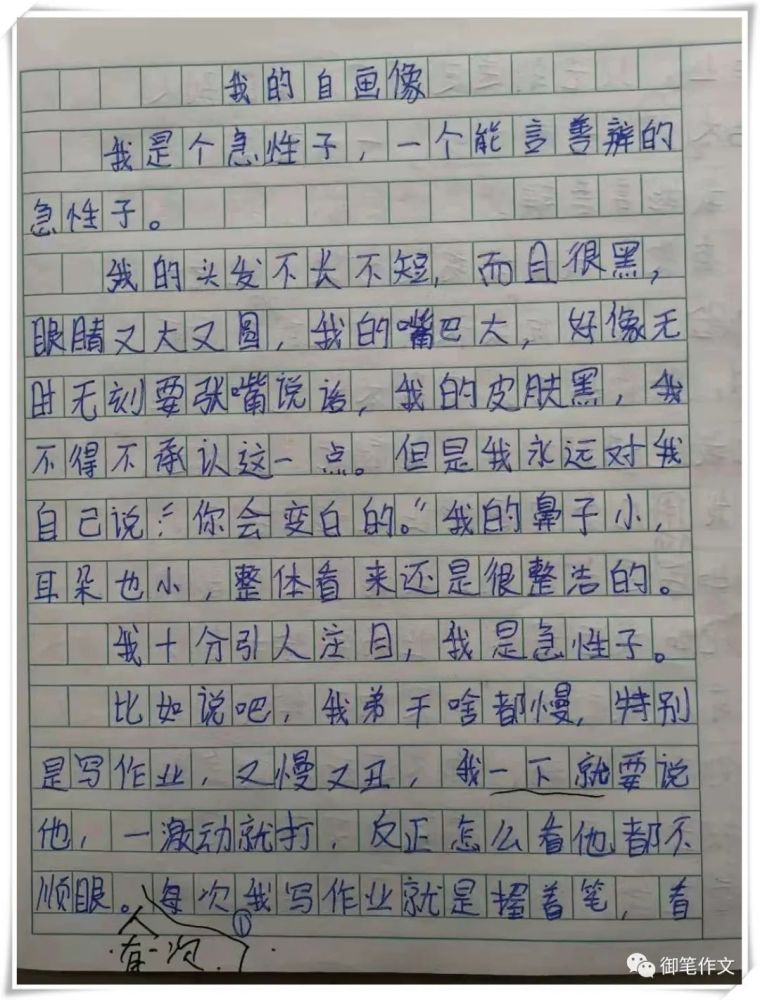 我的自画像
我是个急性子，一个能言善辨的
急性子。
我的头发不长不短，而且很黑，
眼睛又大又圆，我的嘴巴大，好像无
时无刻要张嘴说话，我的皮肤黑，我
不得不承认这一点。但是我永远对我
自己说：“你会变白的。”我的鼻子小，
耳朵也小，整体看来还是很整洁的。
我十分引人注目，我是急性子。
比如说吧，我弟干啥都慢，特别
是写作业，又慢又丑，我一下就要说
他，一激动就打，反正怎么看他都不
顺眼。每次我写作业就是握着笔，看
①
有一次
御笔作文